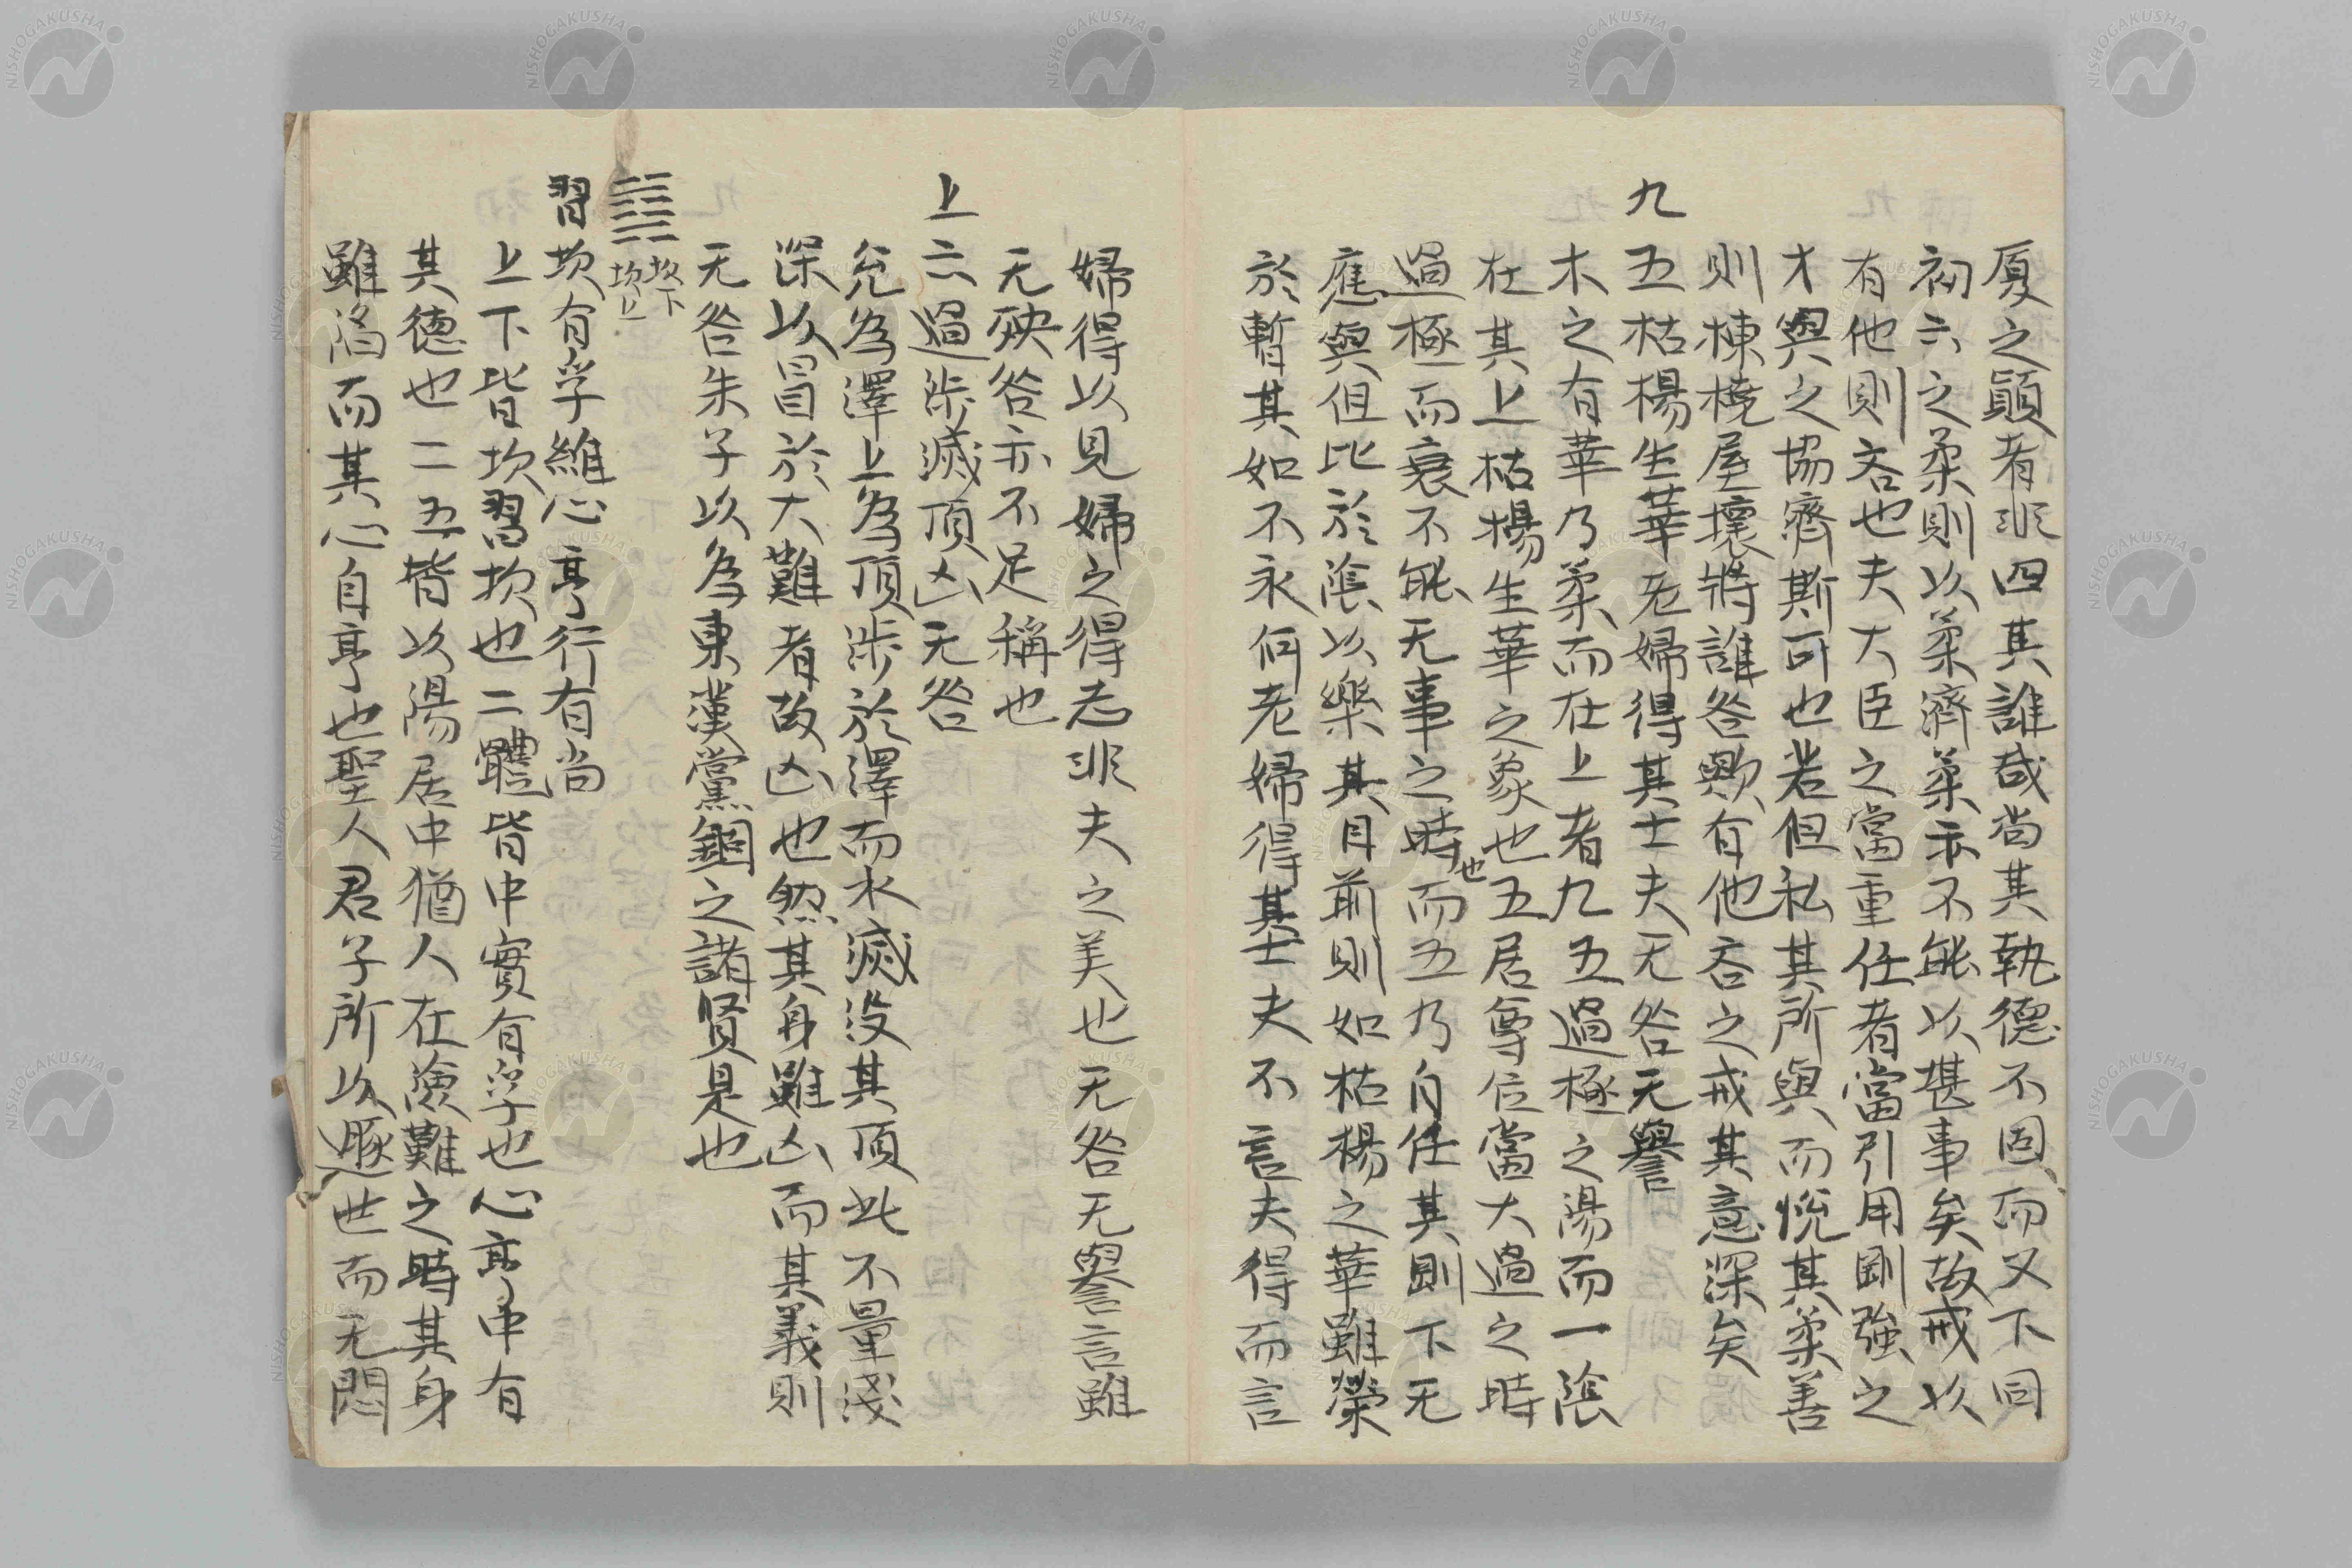 厦之顛者非四其誰哉尚其執德不固而又下同
初六之柔則以柔濟柔亦不能以堪事矣故戒以
有他則吝也夫大臣之當重任者當引用剛強之
才與之協濟斯可也若但私其所與而悅其柔善
則棟橈屋壞將誰咎歟有他吝之戒其意深矣
九五枯楊生華老婦得其士夫无咎无譽
木之有華乃柔而在上者九五過極之陽而一陰
在其上枯楊生華之象也五居尊位當大過之時
過極而衰不能无事之時也而五乃自任其剛下无
應與但比於陰以樂其目前則如枯楊之華雖榮
於暫其如不永何老婦得其士夫不言夫得而言
婦得以見婦之得志非夫之美也无咎无譽言雖
无殃咎亦不足稱也
上六過涉滅頂凶无咎
兌為澤上為頂涉於澤而水滅沒其頂此不量淺
深以冒於大難者故凶也然其身雖凶而其義則
无咎朱子以為東漢黨錮之諸賢是也
䷜坎下坎上
習坎有孚維心亨行有尚
上下皆坎習坎也二體皆中實有孚也心亨中有
其德也二五皆以陽居中猶人在險難之時其身
雖陷而其心自亨也聖人君子所以遯世而无悶
NISHOGAKUSHA